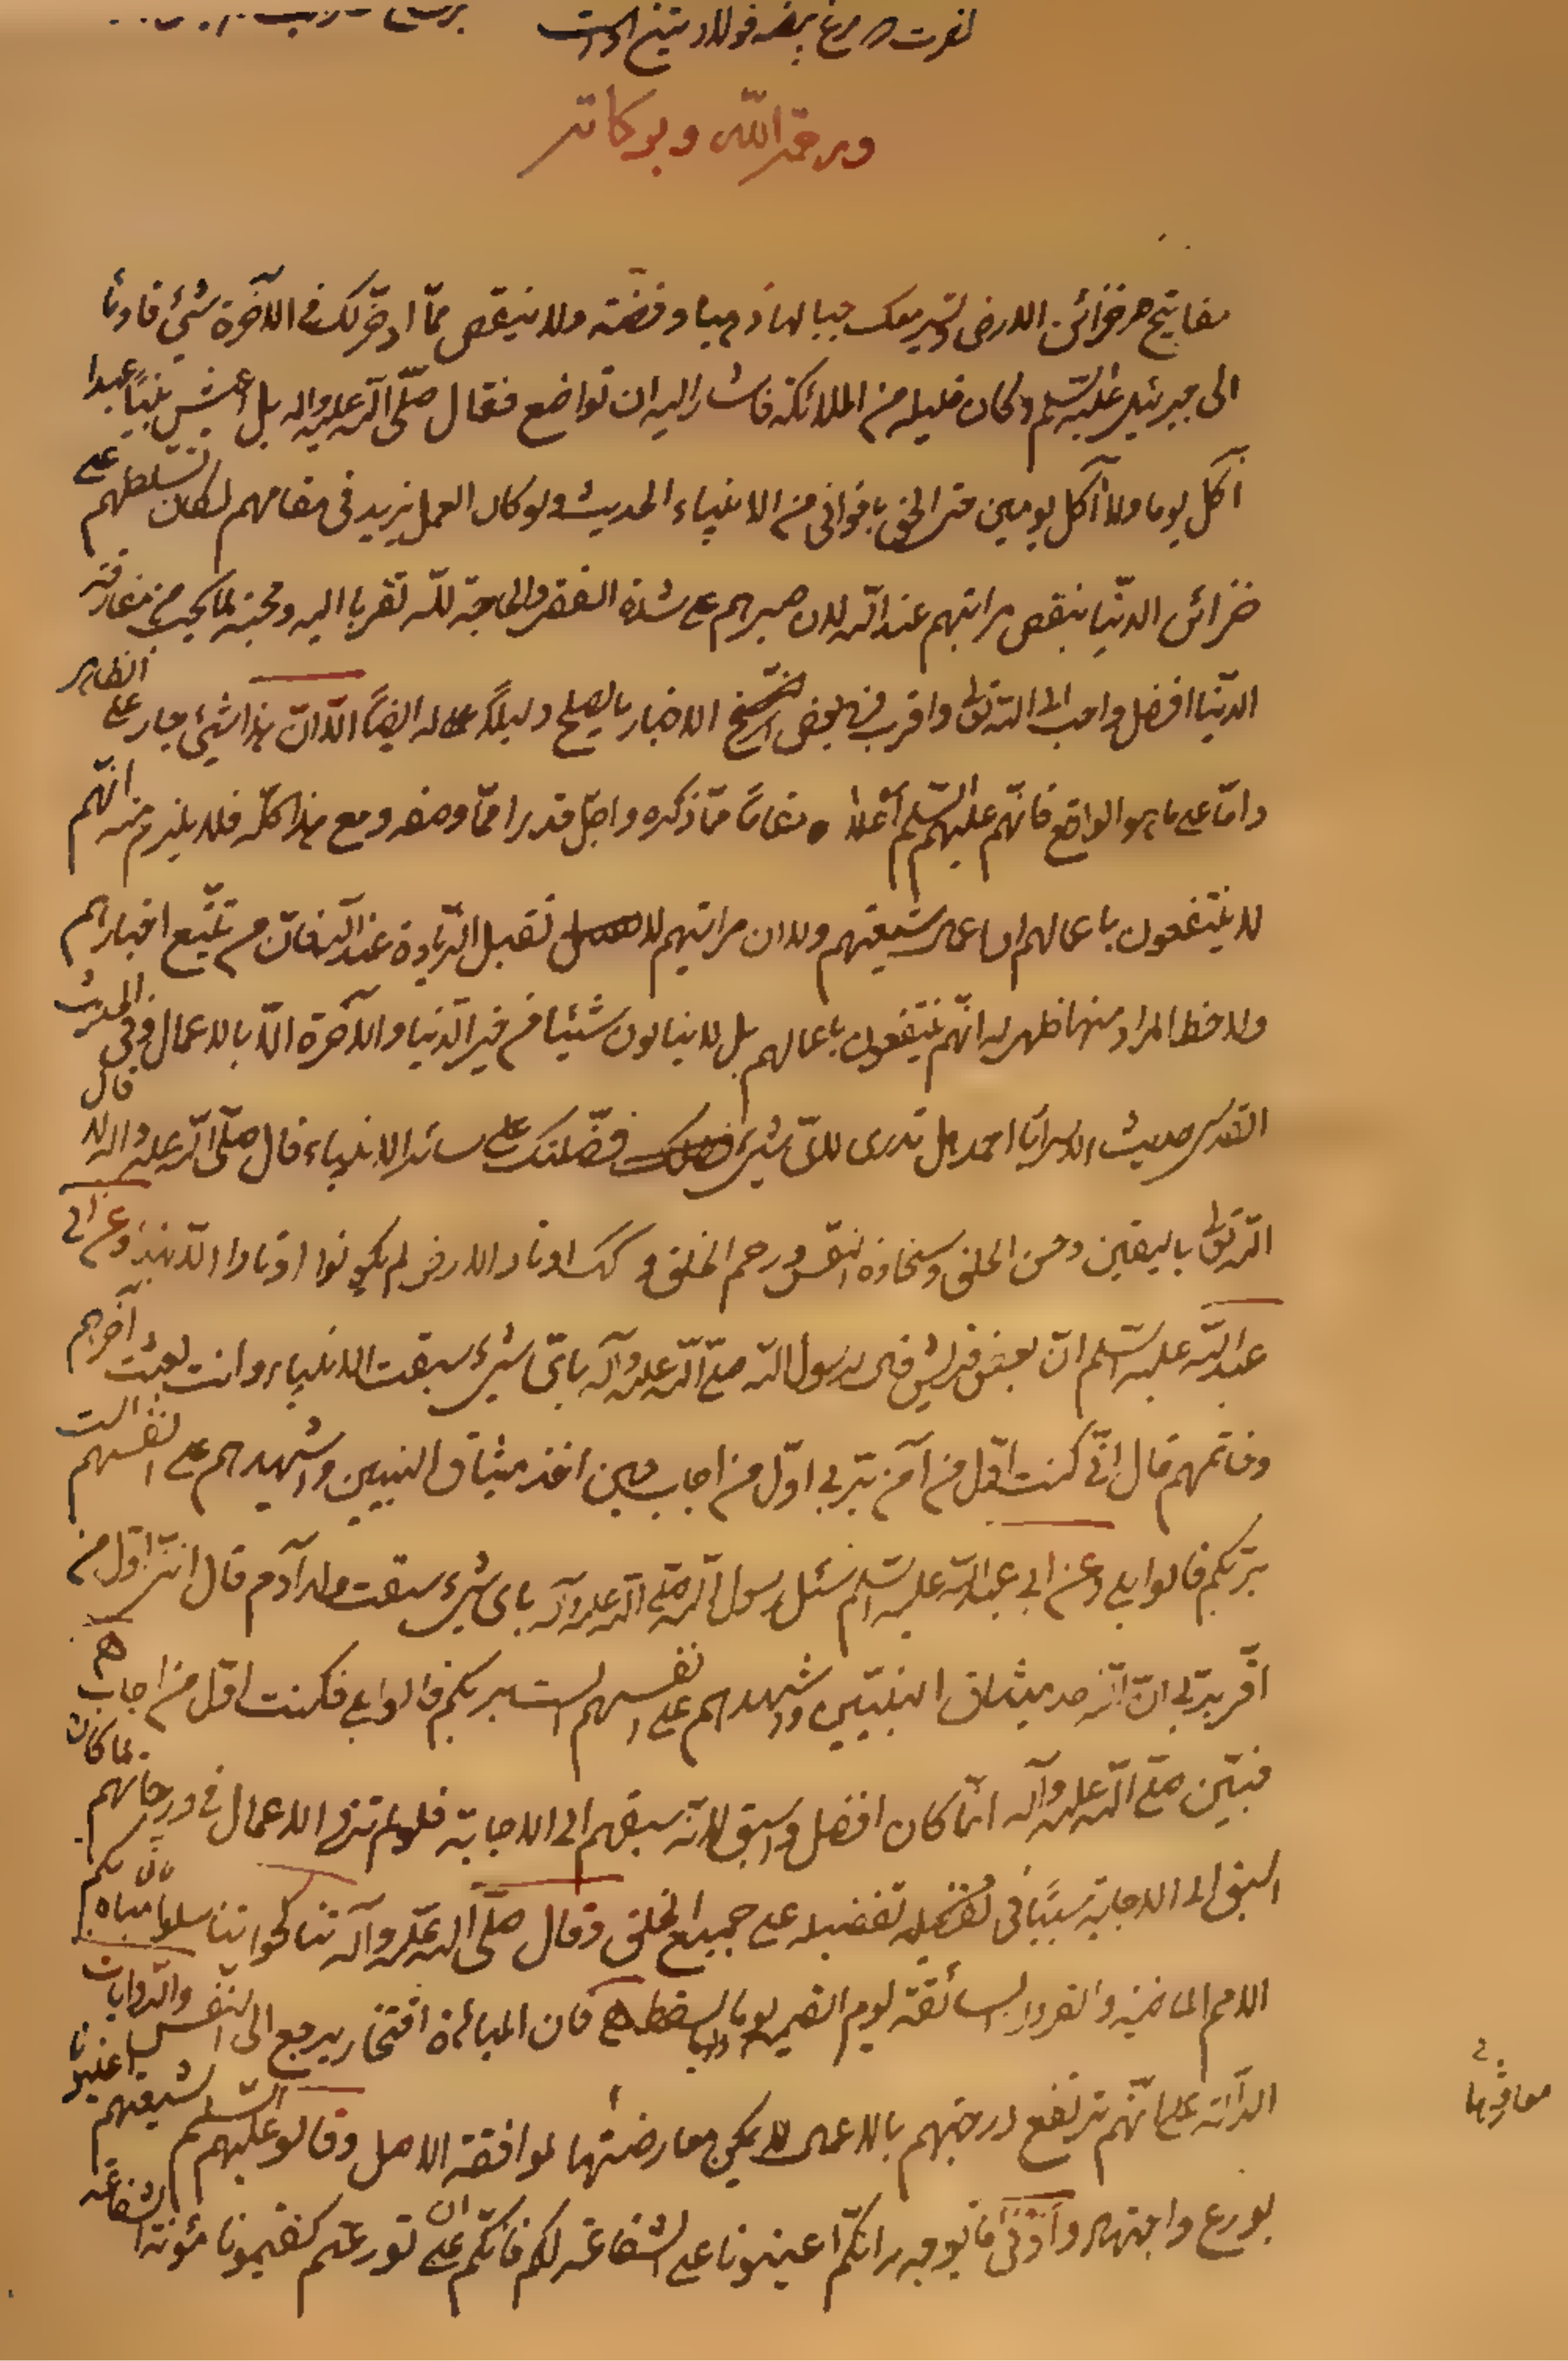 ورحمة الله وبركاته
مفاتيح خزائن الارض لتسير معك جبالها ذهبا وفضة ولا ينقص مما ادخر لك في الآخرة شيئ فاومأ
الى جبرئيل عليه السلم وكان خليله من الملائكة فاشار اليه ان تواضع فقال صلى الله عليه واله بل اعيش نبيا عبدا
آكل يوما ولا آكل يومين حتى الحق باخواني من الانبياء الحديث ولو كان العمل يزيد في مقامهم لكان تسلطهم على
خزائن الدنيا ينقص مراتبهم عند الله لان صبرهم على شدة الفقر والحاجة لله تقربا اليه ومحبة لما يحب من مفارقة
الدنيا افضل واحب الى الله تعالى واقرب في بعض النسخ الاخبار يصلح دليلا له ايضا الا ان هذا شيئ جار على الظاهر
واما على ما هو الواقع فانهم عليهم السلم اعلا مقاما مما ذكره واجل قدرا مما وصفه ومع هذا كله فلا يلزم منه انهم
لا ينتفعون باعمالهم شيعتهم ولا ان مراتبهم لا تقبل الزيادة عند الله فان من تتبع اخبارهم
ولاحظ المراد منها ظهر له انهم ينتفعون باعمالهم بل لا ينالون شيئا من خير الدنيا والآخرة الا بالاعمال وفي الحديث
القدسي حديث الاسراء يا احمد هل تدرى لاي شيئ فضلتك على سائر الانبياء قال صلى الله عليه واله لا قال
الله تعالى باليقين وحسن الخلق وسخاوة النفس ورحم الخلق وكك اوتاد الارض لم يكونوا اوتادا الا بهذا وعن ابي
عبد الله عليه السلم ان بعض قريش قال لرسول الله صلى الله عليه وآله باي شيئ سبقت الانبياء وانت بعثت آخرهم
وخاتمهم قال اني كنت اول من آمن بربي اول من اجاب حين اخذ ميثاق النبيين واشهدهم على انفسهم الست
بربكم قالوا بلى وعن ابي عبد الله عليه السلم سئل رسول الله صلى الله عليه وآله باى شيئ سبقت ولد آدم قال انني اول من
اقر بربي ان الله اخذ ميثاق النبيين واشهدهم على انفسهم الست بربكم قالوا بلى فكنت اول من اجاب هـ
فبين صلى الله عليه وآله انما كان افضل واسبق لانه سبقهم الى الاجابة فلو لم تزد الاعمال في درجاتهم لما كان
السبق الى الاجابة سببا في تفضيله على جميع الخلق وقال صلى الله عليه وآله تناكحوا تناسلوا فاني مباه بكم
الامم الماضية والقرون السالفة يوم القيمة ولو بالسقط هـ فان المباهاة افتخار يرجع الى النفس والروايات
الدالة على انهم ترتفع درجتهم بالاعمال لا يمكن معارضتها لموافقة الاصل وقالوا عليهم السلم لشيعتهم اعينونا
بورع واجتهاد وانكم اعينونا على الشفاعة لكم فانكم ان تورعتم كفيتمونا مؤنة الشفاعة